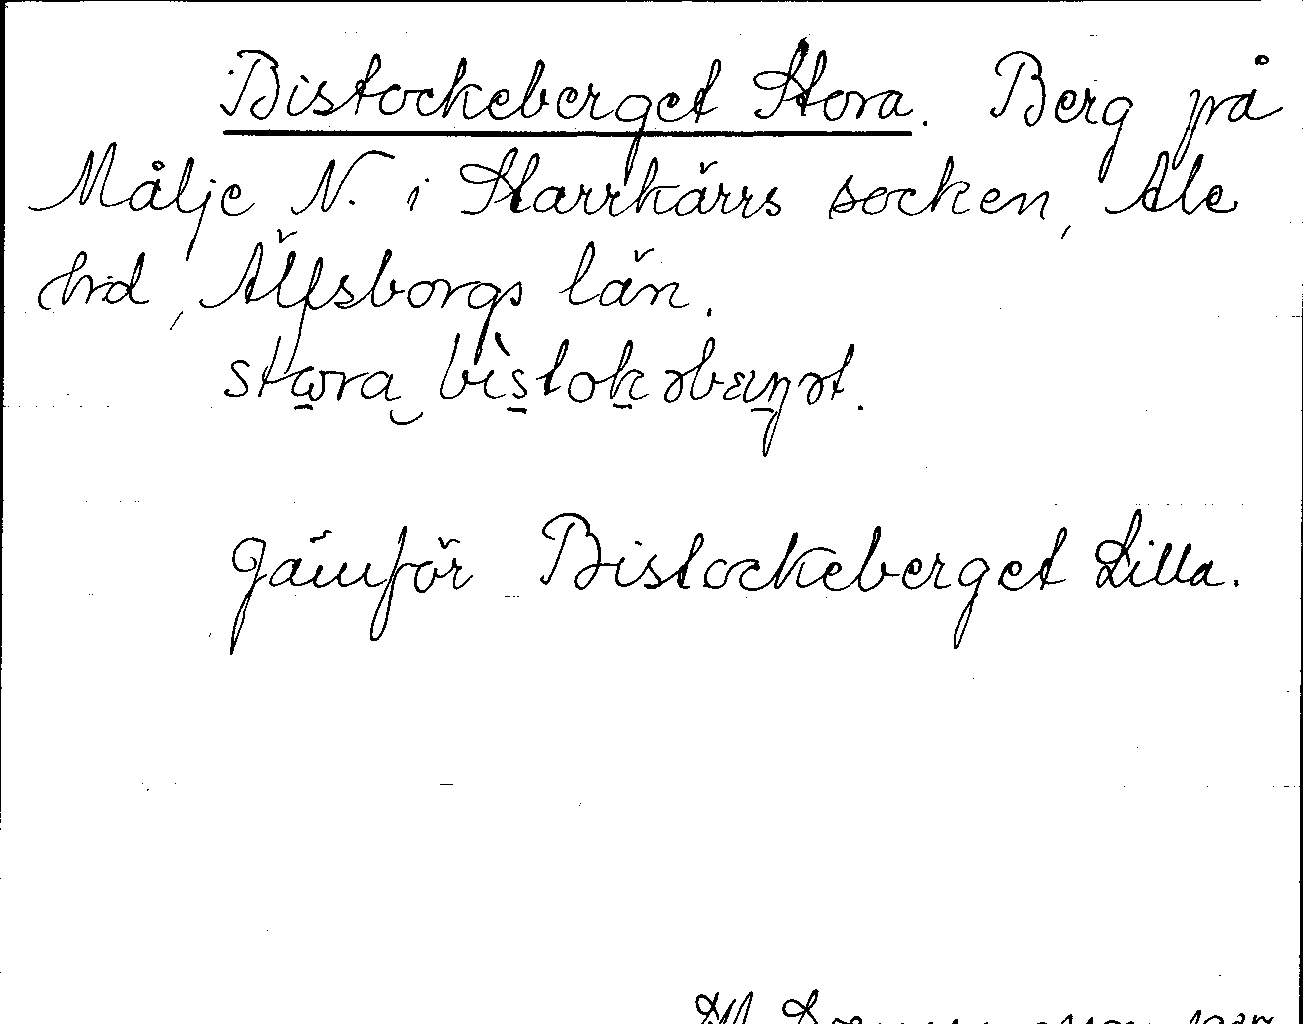 Bistockeberget Stora. Berg på
Målje N. i Starrkärrs socken, Ale
hrd, Älfsborgs län.
Jämför Bistockeberget Lilla.